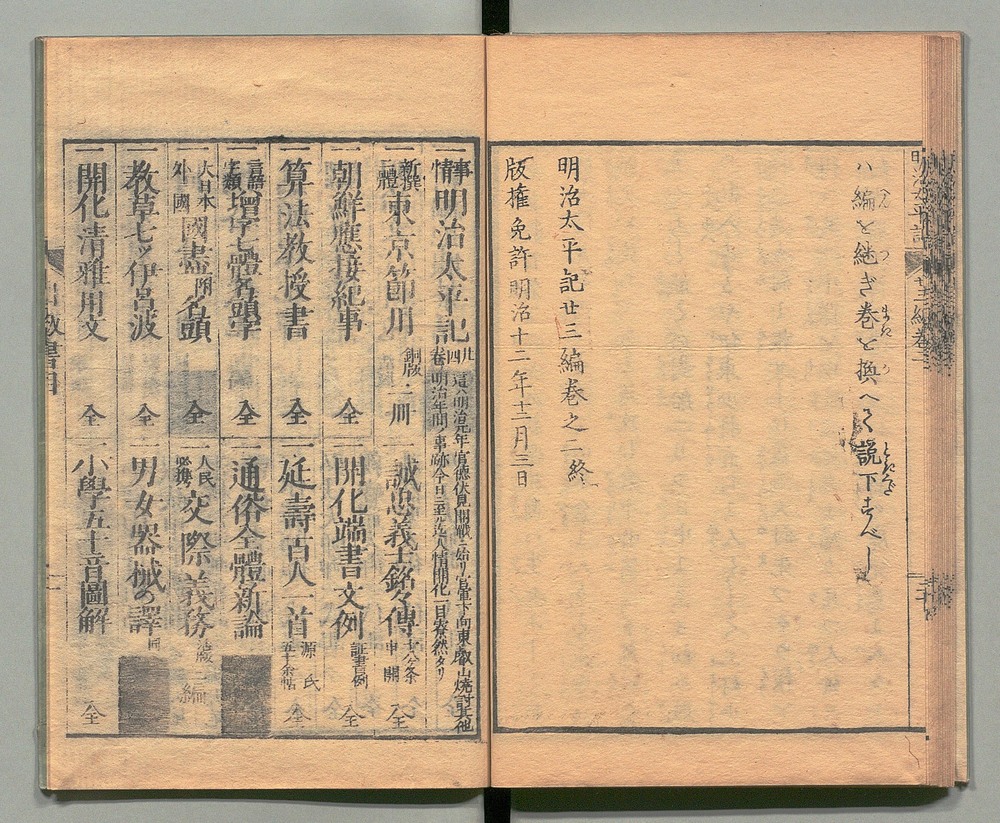 ハ編を継ぎ巻を換へて説下すべし
明治太平記廿三編巻之二終
版権免許明治十二年十二月三日
事情明治太平記 廿四巻
這ハ明治元年官徳伏見開戦ニ始リ官軍下向東叡山焼討其他
明治年間ノ事跡今日ニ至ル迄人情開化一目寮然タリ
新撰二體東京節用 銅版 一冊
一誠忠義士銘々傳 全
一朝鮮應接紀事 全
一開化端書文例 証書例 全
一算法教授書 全
一延壽百人一首 源氏五十余帖 全
言語字類増字七體名頭字 全
一通俗全體新論
大日本外國國盡 附名頭 全
人民必携交際義務 二編
一教草七ツ伊呂波 全
一男女器械の譯 同
一開化清雅用文 全
一小學五十音圖解 全